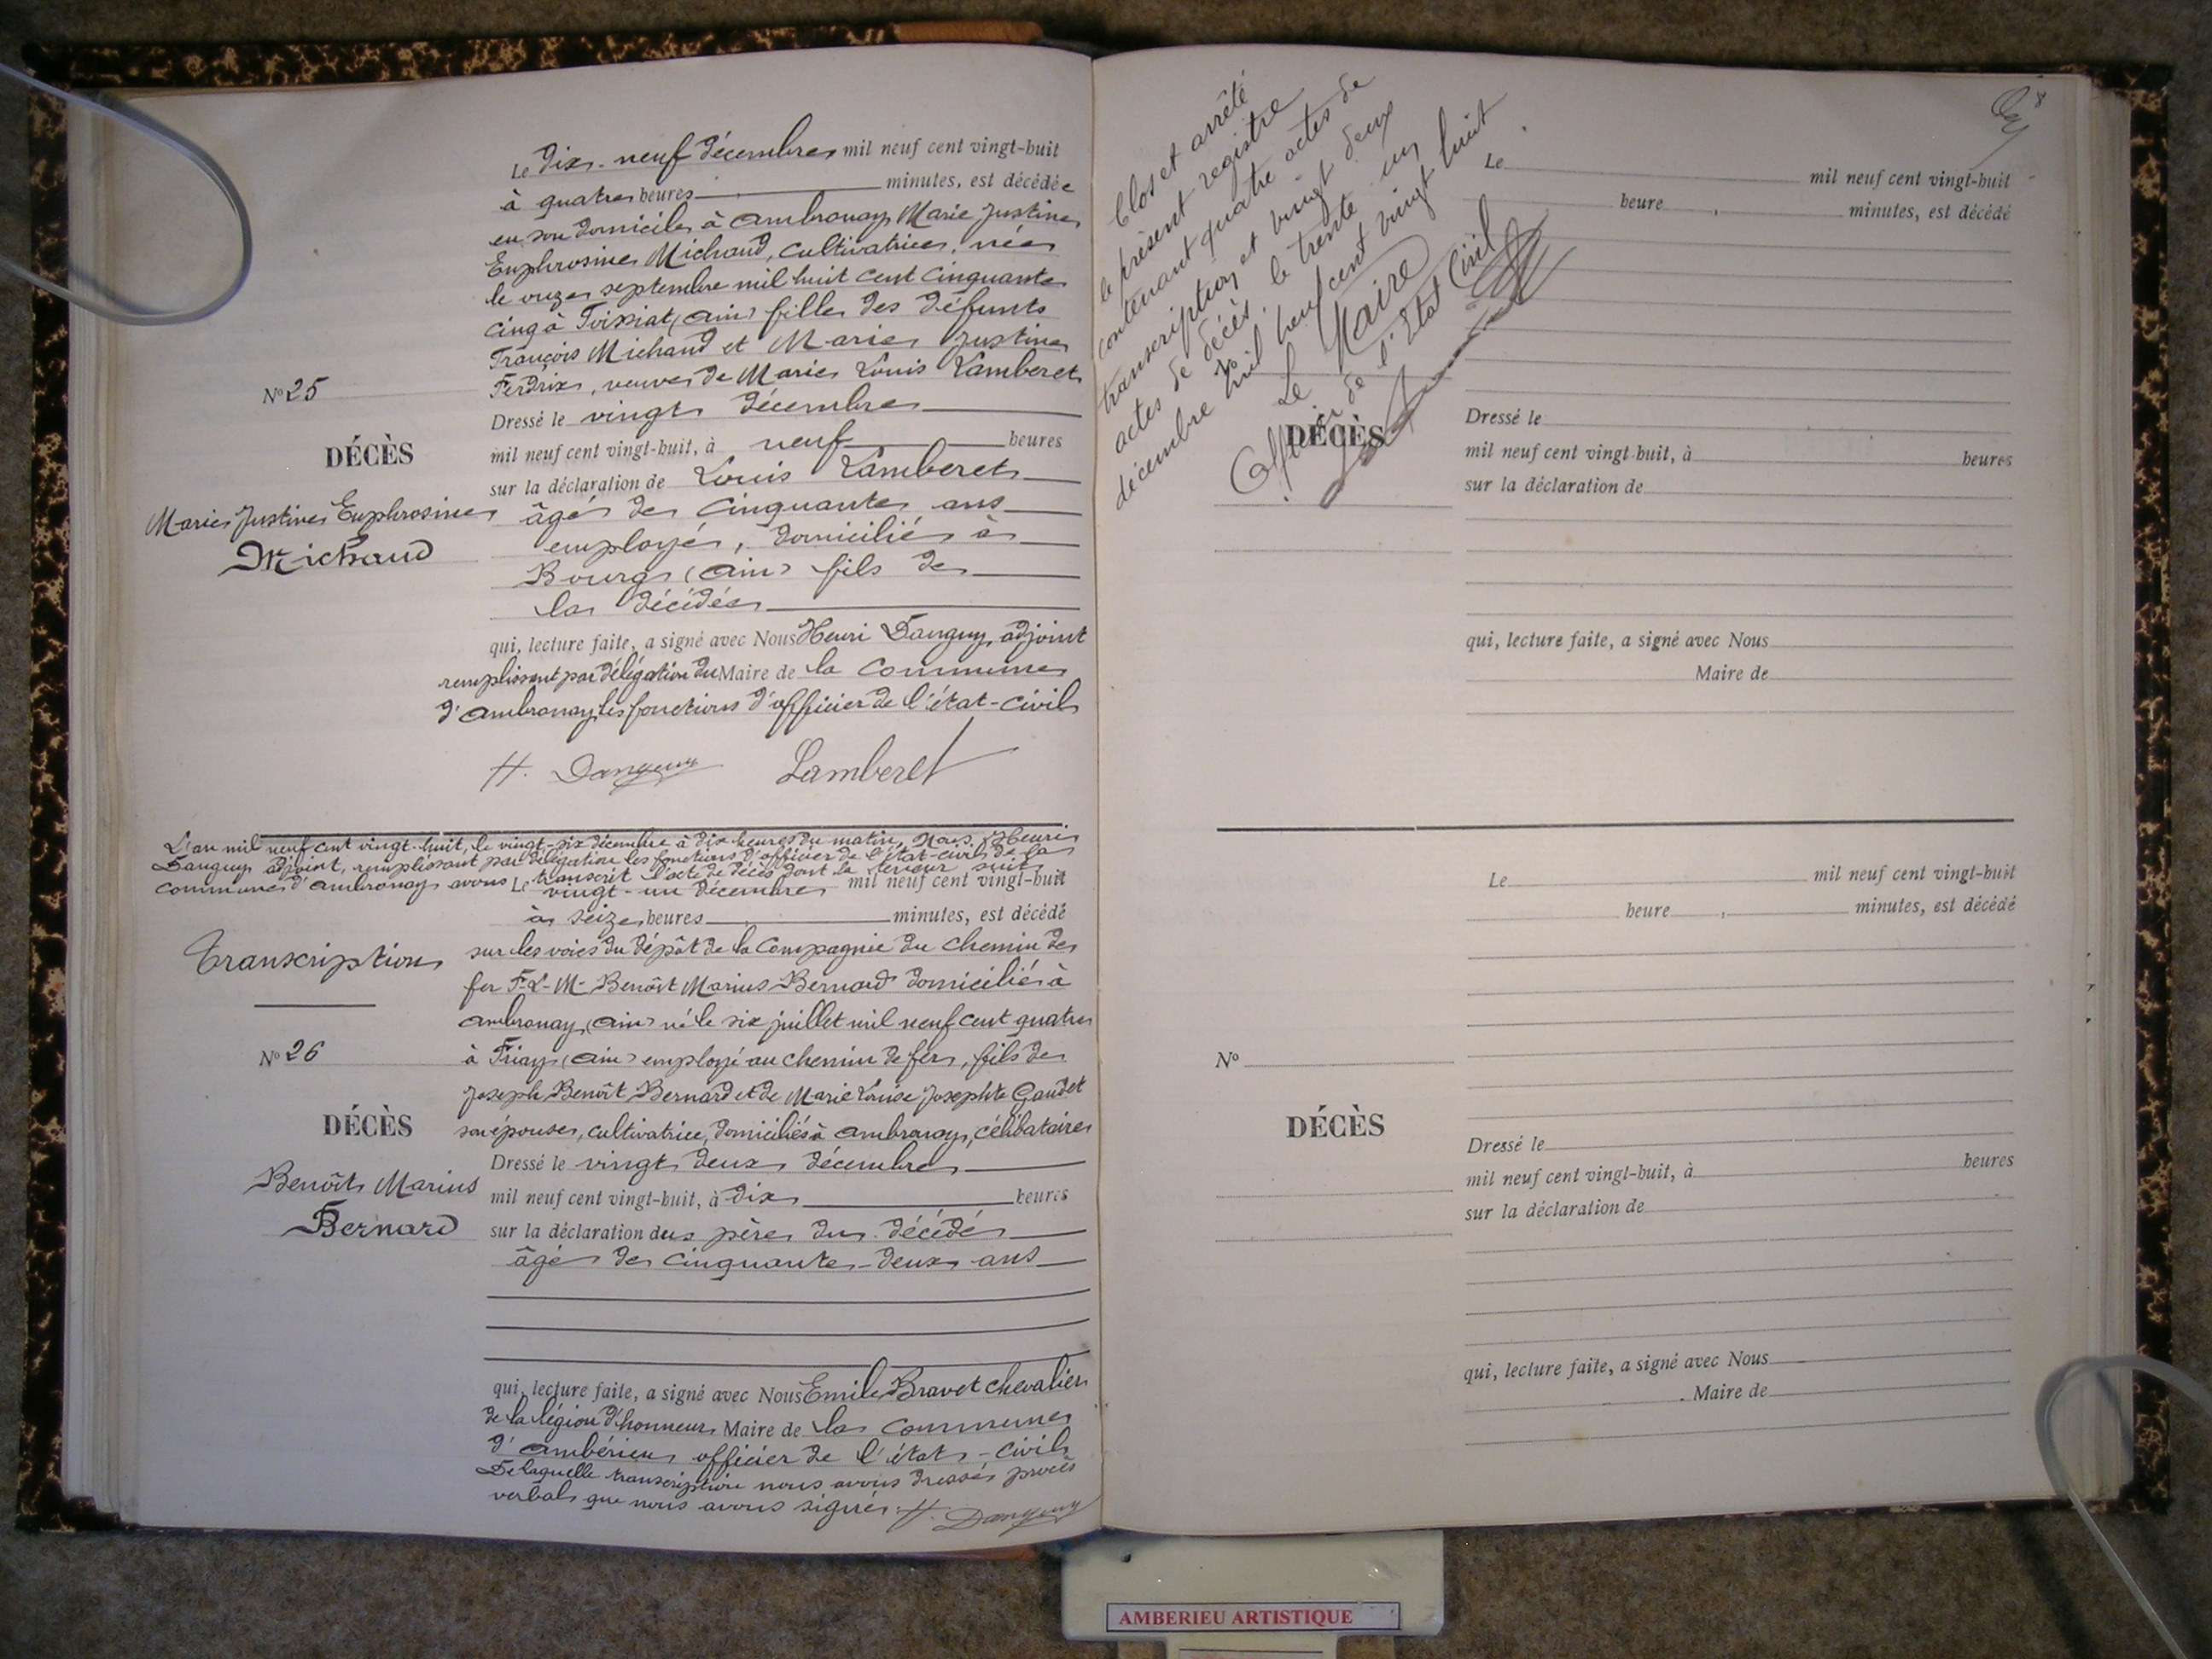 Le dix-neuf décembre mil neuf cent vingt-huit
à quatre heures minutes, est décédée
en son domicile à Ambronay Marie Justine
Euphrosine Michaud, cultivatrice, née
le onze septembre mil huit cent cinquante
cinq à Poisiat (Ain) fille des défunts
François Michaud et Marie Justine
Perdrix, veuve de Marie Louis Lamberet
Nº 25
DÉCÈS
Marie Justine Euphrosine
Michaud
Dressé le vingt décembre
mil neuf cent vingt-huit, à neuf heures
sur la déclaration de Louis Lamberet
âgé de cinquante ans
employé, domicilié à
Bourg (Ain) fils de
la décédée
qui, lecture faite, a signé avec Nous Henri Danguy, adjoint
remplissant par délégation du Maire de la Commune
d'Ambronay les fonctions d'officier de l'état-civil
H. Danguy Lamberet
L'an mil neuf cent vingt-huit, le vingt-six décembre à dix heures du matin, Nous, Henri
Danguy adjoint, remplissant par délégation les fonctions d'officier de l'état-civil de la
commune d'Ambronay avons transcrit l'acte de décès dont la teneur suit
Le vingt-un décembre mil neuf cent vingt-huit
à seize heures minutes, est décédé
Transcription
sur les voies du dépôt de la Compagnie du Chemin de
fer P-L-M- Benoît Marius Bernard domicilié à
Ambronay (Ain) né le six juillet mil neuf cent quatre
Nº 26
à Priay (Ain) employé au chemin de fer, fils de
Joseph Benoît Bernard et de Marie Louise Josephte Gaudet
DÉCÈS
son épouse, cultivatrice, domiciliés à Ambronay, célibataire
Benoît Marius
Bernard
Dressé le vingt deux décembre
mil neuf cent vingt-huit, à dix heures
sur la déclaration du père du décédé
âgé de cinquante-deux ans
qui, lecture faite, a signé avec Nous Emile Bravet chevalier
de la légion d'honneur Maire de la Commune
d'Ambérieu officier de l'état-civil
De laquelle transcription nous avons dressé procès
verbal que nous avons signé. H. Danguy
Clos et arrêté
le présent registre
contenant quatre actes de
transcription et vingt deux
actes de décès, le trente un
décembre mil neuf cent vingt huit
Le Maire
Officier de l'Etat Civil
8
Le mil neuf cent vingt-huit
heure , minutes, est décédé
Dressé le
DÉCÈS
mil neuf cent vingt-huit, à heures
sur la déclaration de
qui, lecture faite, a signé avec Nous
Maire de
Le mil neuf cent vingt-huit
heure , minutes, est décédé
Nº
DÉCÈS
Dressé le
mil neuf cent vingt-huit, à heures
sur la déclaration de
qui, lecture faite, a signé avec Nous
Maire de
AMBERIEU ARTISTIQUE